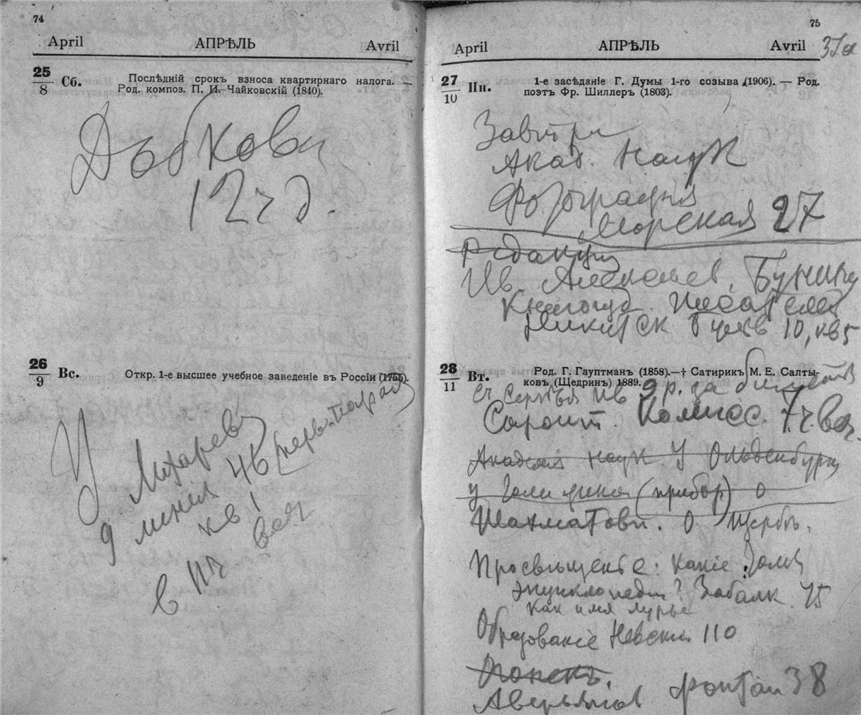 74
April АПРѢЛЬ Avril
25
8
Сб.
Послѣдній срокъ взноса квартирнаго налога. —
Род. композ. П. И. Чайковскій (1840).
12 ч д.
26
9
Вс.
Откр. 1-е высшее учебное заведеніе въ Россіи (1755).
У
9 линия 46
кв 1
в 11 ч веч
75
April АПРѢЛЬ Avril
27
10
Пн.
1-е засѣданіе Г. Думы 1-го созыва (1906). — Род.
поэтъ Фр. Шиллеръ (1803).
Завтра
Акад. Наук
Фотография
Морская 27
Редакция
Ив. Алексеев. Бунину
Книгоизд. Писателей
10, кв 5
28
11
Вт.
Род. Г. Гауптманъ (1858).—† Сатирикъ М. Е. Салты-
ковъ (Щедринъ) 1889.
9 р. за
Комисс. 7 ч. веч.
Академия Наук У Ольденбурга
у (прибор) о
Шахматови. О Щерб.
Просвещение: какие
энциклопедии? Забалк. 75
как имя
Образование Невский 110
Огонекъ.
Аверьянов Фонтан 38